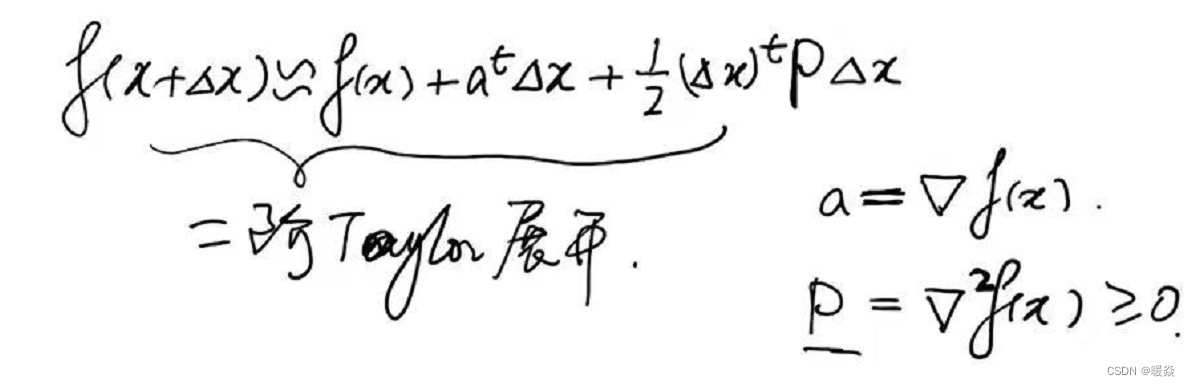 f(x+Δx)≈f(x)+aᵗΔx+½(Δx)ᵗPΔx
二阶Taylor展开.
a=∇f(x).
P=∇²f(x)≥0.
CSDN @暖焱